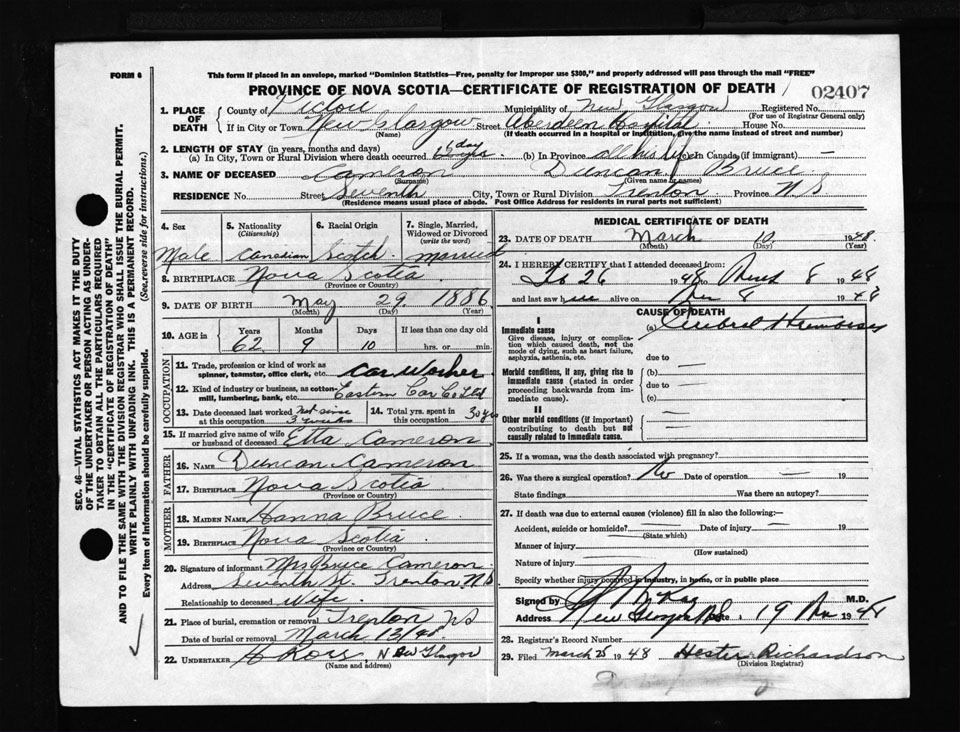 FORM 6
This form if placed in an envelope, marked "Dominion Statistics—Free, penalty for improper use $300," and properly addressed will pass through the mail "FREE"
PROVINCE OF NOVA SCOTIA—CERTIFICATE OF REGISTRATION OF DEATH
02407
1. PLACE OF DEATH
County of Pictou Municipality of New Glasgow Registered No.
(For use of Registrar General only)
If in City or Town New Glasgow Street Aberdeen Hospital House No.
(Name) (If death occurred in a hospital or institution, give the name instead of street and number)
2. LENGTH OF STAY (in years, months and days)
(a) In City, Town or Rural Division where death occurred 13 day (b) In Province all his life In Canada (if immigrant) —
3. NAME OF DECEASED Cameron Duncan Bruce
(Surname) (Given name or names)
RESIDENCE No. Street Seventh City, Town or Rural Division Trenton Province N.S
(Residence means usual place of abode. Post Office Address for residents in rural parts not sufficient)
4. Sex
Male
5. Nationality (Citizenship)
Canadian
6. Racial Origin
Scotch
7. Single, Married, Widowed or Divorced (write the word)
married
8. BIRTHPLACE Nova Scotia
(Province or Country)
9. DATE OF BIRTH May 29 1886
(Month) (Day) (Year)
10. AGE in Years Months Days If less than one day old
62 9 10 hrs. or min.
OCCUPATION
11. Trade, profession or kind of work as spinner, teamster, office clerk, etc. Car Worker
12. Kind of industry or business, as cotton-mill, lumbering, bank, etc. Eastern Car Co Ltd
13. Date deceased last worked at this occupation 3 weeks
14. Total yrs. spent in this occupation 30 yrs
15. If married give name of wife or husband of deceased Etta Cameron
FATHER
16. NAME Duncan Cameron
17. BIRTHPLACE Nova Scotia
(Province or Country)
MOTHER
18. MAIDEN NAME Hanna Bruce
19. BIRTHPLACE Nova Scotia
(Province or Country)
20. Signature of informant Mrs Bruce Cameron
Address Seventh St. Trenton N.S
Relationship to deceased Wife.
21. Place of burial, cremation or removal Trenton NS
Date of burial or removal March 13/48.
22. UNDERTAKER H Ross New Glasgow
(Name and address)
MEDICAL CERTIFICATE OF DEATH
23. DATE OF DEATH March 10 1948.
(Month) (Day) (Year)
24. I HEREBY CERTIFY that I attended deceased from:
26 1948 to 8 1948
and last saw him alive on 8 1948
CAUSE OF DEATH
I
Immediate cause
Give disease, injury or complication which caused death, not the mode of dying, such as heart failure, asphyxia, asthenia, etc.
(a) Cerebral
due to —
Morbid conditions, if any, giving rise to immediate cause (stated in order proceeding backwards from immediate cause).
(b)
due to —
(c)
II
Other morbid conditions (if important) contributing to death but not causally related to immediate cause.
25. If a woman, was the death associated with pregnancy?
26. Was there a surgical operation? No Date of operation — 19
State findings Was there an autopsy?
27. If death was due to external causes (violence) fill in also the following:—
Accident, suicide or homicide? Date of injury — 19
(State which)
Manner of injury
(How sustained)
Nature of injury
Specify whether injury occurred in industry, in home, or in public place
Signed by McKay M.D.
Address New Glasgow NS Date 19 1948
28. Registrar's Record Number
29. Filed March 25 1948 Hester Richardson
(Division Registrar)
SEC. 46—VITAL STATISTICS ACT MAKES IT THE DUTY
OF THE UNDERTAKER OR PERSON ACTING AS UNDER-
TAKER TO OBTAIN ALL THE PARTICULARS REQUIRED
IN THE "CERTIFICATE OF REGISTRATION OF DEATH"
AND TO FILE THE SAME WITH THE DIVISION REGISTRAR WHO SHALL ISSUE THE BURIAL PERMIT.
WRITE PLAINLY WITH UNFADING INK. THIS IS A PERMANENT RECORD.
Every item of information should be carefully supplied. (See reverse side for instructions.)